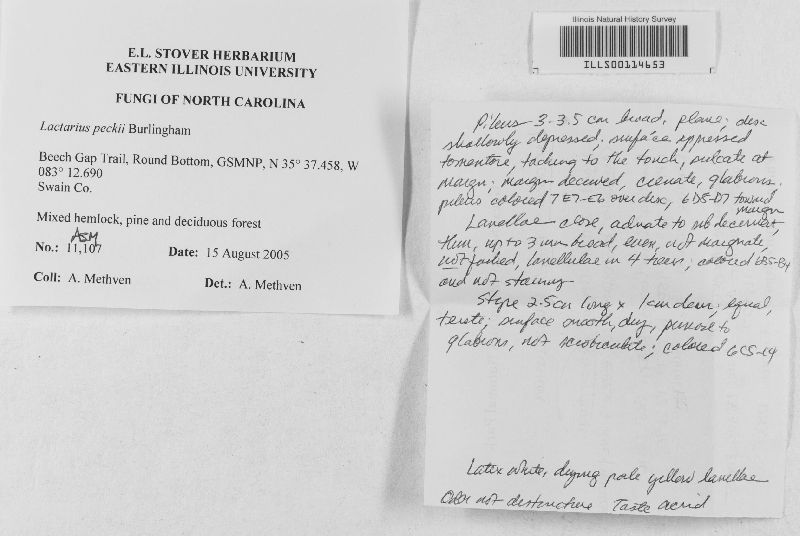 E.L. STOVER HERBARIUM
EASTERN ILLINOIS UNIVERSITY
FUNGI OF NORTH CAROLINA
Lactarius peckii Burlingham
Beech Gap Trail, Round Bottom, GSMNP, N 35° 37.458, W
083° 12.690
Swain Co.
Mixed hemlock, pine and deciduous forest
ASM
No.: 11,107 Date: 15 August 2005
Coll: A. Methven Det.: A. Methven
Illinois Natural History Survey
ILLS00114653
Pileus 3-3.5 cm broad, plane; disc
shallowly depressed; surface appressed
tomentose, tacking to the touch, sulcate at
margin; margin decurved, crenate, glabrous.
pileus colored 7E7-E6 over disc, 6D5-D7 toward
margin
Lamellae close, adnate to subdecurrent,
thin, up to 3 mm broad, even, not marginate,
not forked, lamellulae in 4 tiers; colored 6B5-B4
and not staining
Stipe 2.5cm long x 1cm diam; equal,
terete; surface smooth, dry, pruinose to
glabrous, not scrobiculate; colored 6C5-C4
Latex white, drying pale yellow lamellae
Odor not distinctive Taste acrid